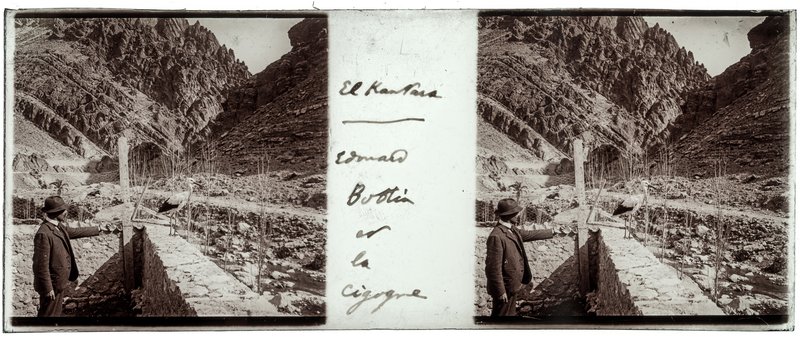 El Kantara
Edouard
Bottin
et
la
Cigogne